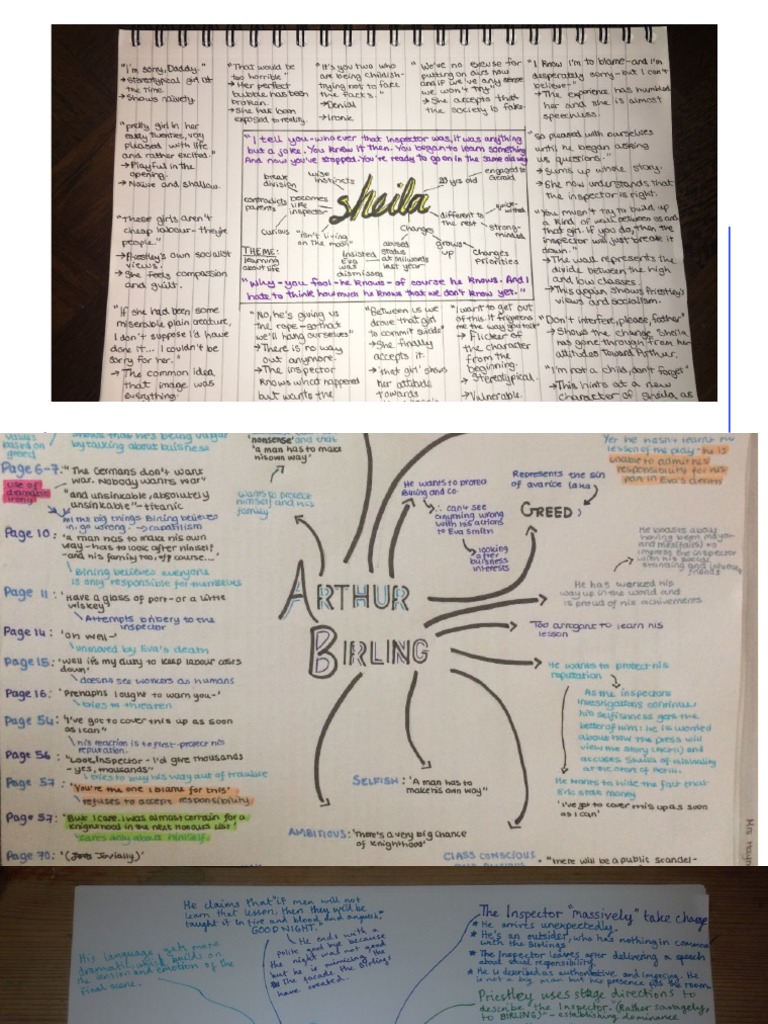 "I'm sorry, Daddy."
→ Stereotypical girl at
the time.
→ Shows naivety.
"pretty girl in her
early twenties, very
pleased with life
and rather excited."
→ Playful in the
opening.
→ Naive and shallow.
"These girls aren't
cheap labour - they're
people."
→ Priestley's own socialist
views.
→ She feels compassion
and guilt.
"If she had been some
miserable plain creature,
I don't suppose I'd have
done it... I couldn't be
sorry for her."
→ The common idea
that image was
everything.
"That would be
too horrible"
→ Her perfect
bubble has been
broken.
→ She has been
exposed to reality.
"It's you two who
are being childish-
trying not to face
the facts."
→ Denial
→ Ironic
"We've no excuse for
putting on airs now
and if we've any sense
we won't try"
→ She accepts that
the society is fake.
"I know I'm to blame - and I'm
desperately sorry - but I can't
believe-"
→ The experience has humbled
her and she is almost
speechless.
"I tell you - whoever that Inspector was, it was anything
but a joke. You knew it then. You began to learn something
And now you've stopped. You're ready to go on in the same old way
break
division
wise
instincts
sheila
20 yrs old
engaged to
Gerald
contradicts
parents
becomes
like
inspector
different to
the rest
strong-
minded
curious
"isn't living
on the moon"
changes
grows
up
changes
priorities
THEME:
learning
about life
Insisted
Eva
was
dismissed
caused
status
at milwards
last year
"Why - you fool - he knows - of course he knows. And I
hate to think how much he knows that we don't know yet."
"so pleased with ourselves
until he began asking
us questions."
→ Sums up whole story.
→ She now understands that
the inspector is right.
"You mustn't try to build up
a kind of wall between us and
that girl. If you do, then the
inspector will just break it
down."
→ The wall represents the
divide between the high
and low classes.
→ This again shows Priestley's
views and socialism.
"Don't interfere, please, father"
→ Shows the change Sheila
has gone through from her
attitudes toward Arthur.
"I'm not a child, don't forget"
→ This hints at a new
character of Sheila, as
"No, he's giving us
the rope - so that
we'll hang ourselves"
→ There is no way
out anymore.
→ The inspector
knows what happened
but wants the
"Between us we
drove that girl
to commit suicide"
→ She finally
accepts it.
→ 'that girl' shows
her attitude
towards
"I want to get out
of this. It frightens
me the way you talk"
→ Flicker of
the character
from the
beginning.
→ Stereotypical.
→ Vulnerable.
values
based on
greed
shows that he's being vulgar
by talking about buisness
Page 6-7: "The Germans don't want
war. Nobody wants war"
use of
dramatic
irony
"and unsinkable, absolutely
unsinkable" - titanic
All the big things Birling believes
in go wrong → capatilism
Page 10: "a man has to make his own
way - has to look after himself
- and his family too, off course..."
Birling believes everyone
is only responsible for themselves
Page 11: 'Have a glass of port - or a little
whiskey'
Attempts bribery to the
inspector
Page 14: 'oh well-'
unmoved by Eva's death
Page 15: 'Well it's my duty to keep labour costs
down'
doesn't see workers as humans
Page 16: 'Perhaphs I ought to warn you-'
tries to threaten
Page 54: 'I've got to cover this up as soon
as I can"
his reaction is to first-protect his
reputation.
Page 56: "Look, Inspector - I'd give thousands
- yes, thousands"
tries to buy his way out of trouble
Page 57: 'You're the one I blame for this'
refuses to accept responsibility
Page 57: 'But I care. I was almost certain for a
knighthood in the next honours list'
cares only about himself
Page 70: '(Jovially)'
'nonsense' and that
'a man has to make
his own way'
wants to protect
himself and his
family
He wants to protect
Birling and co.
∴ can't see
anything wrong
with his actions
to Eva Smith
looking
after
buisness
interests
Represents the sin
of avarice
GREED:
Yet he hasn't learnt his
lesson of the play - he is
unable to admit his
responsibility for his
part in Eva's death
He boasts about
having been mayor
and magistrate to
impress the inspector
with his social
standing and influential
friends
He has worked his
way up in the world and
is proud of his achivements
Too arrogant to learn his
lesson
ARTHUR
BIRLING
He wants to protect his
reputation
As the inspectors
investigations continue,
his selfishness gets the
better of him: he is worried
about how the press will
view the story (Act II) and
accuses Sheila of disloyalty
at the start of Act III.
He wants to hide the fact that
Eric stole money
'I've got to cover this up as soon
as I can'
SELFISH: 'A man has to
make his own way"
AMBITIOUS: 'There's a very big chance
of knighthood'
CLASS CONSCIOUS
"there will be a public scandel-
He claims that "if men will not
learn that lesson, then they will be
taught it in fire and blood and anguish.
GOODNIGHT."
He ends with a
polite goodbye because
the night was not good
but he is mimicking the
the facade the Birlings
have created.
His language gets more
dramatic which builds on
the tension and emotion of the
final scene.
The Inspector "massively" take charge
* He arrives unexpectedly.
* He's an outsider, who has nothing in common
with the Birlings
* The Inspector leaves after delivering a speech
about social responsibility.
* He is described as authoritative and imposing. He
is not a big man but his presence fills the room.
Priestley uses stage directions to
describe the Inspector. (Rather savagely,
to BIRLING)" - establishing dominance